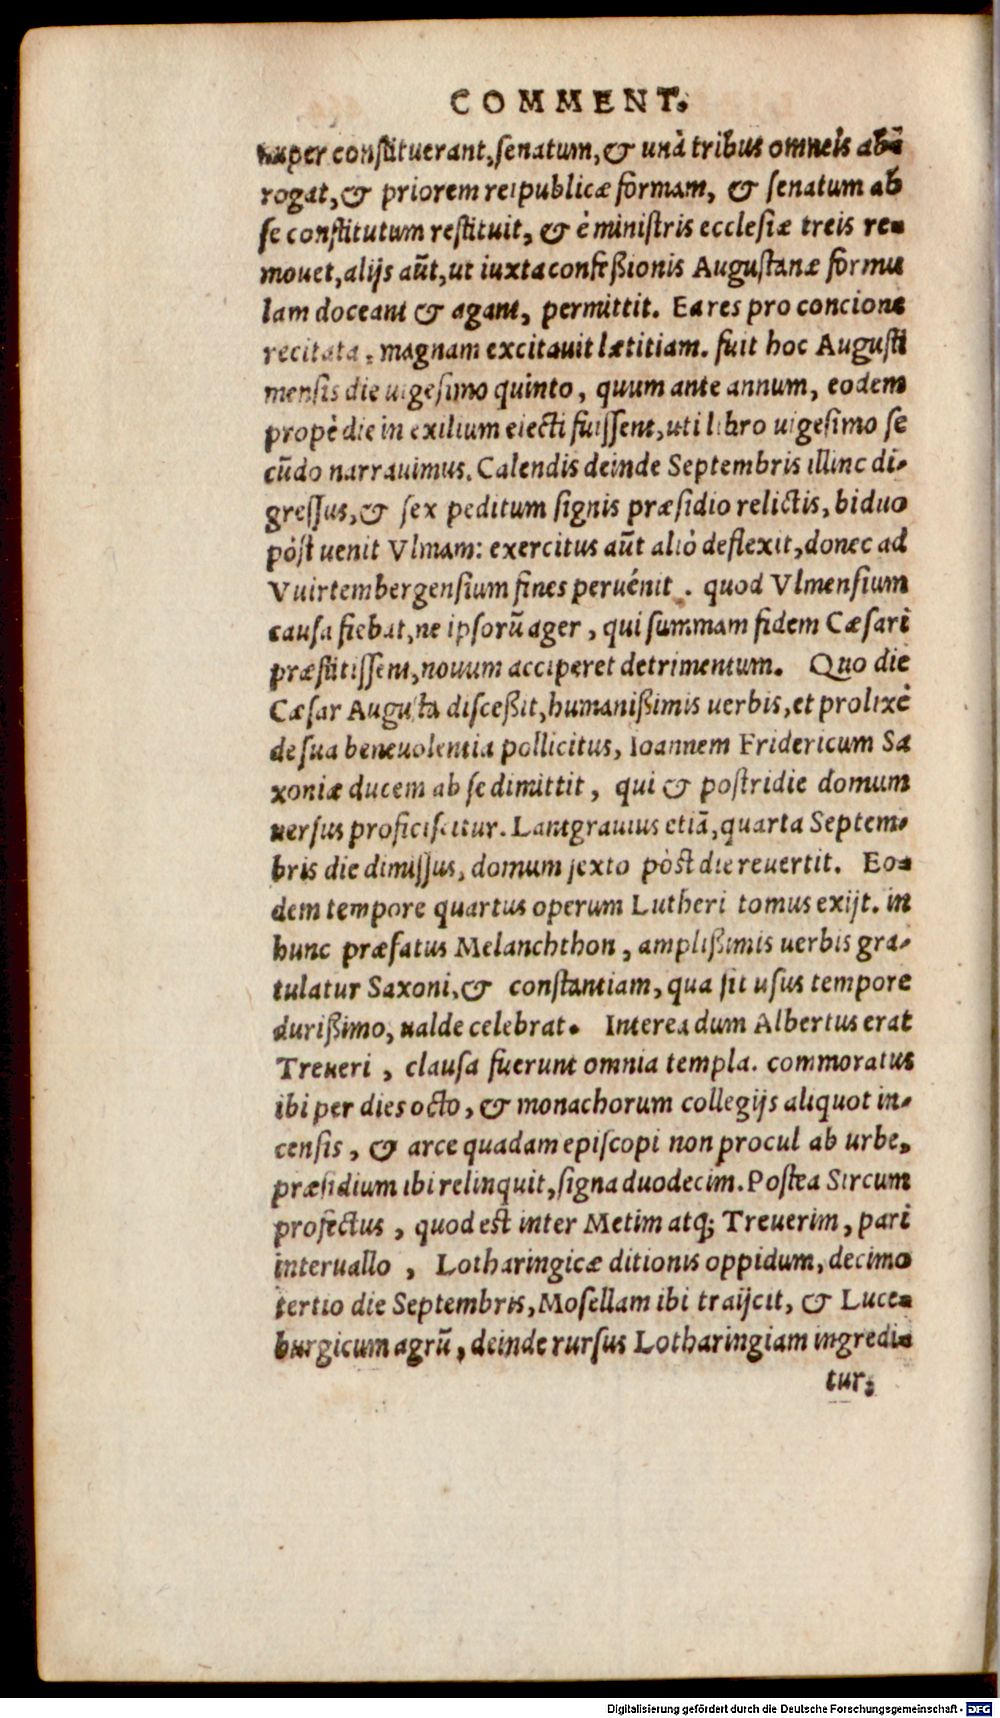 COMMENT.
nuper constituerant, senatum, & unà tribus omneis ab=
rogat, & priorem reipublicæ formam, & senatum ab
se constitutum restituit, & è ministris ecclesiæ treis re=
mouet, alijs aũt, ut iuxta confeßionis Augustanæ formu
lam doceant & agant, permittit. Ea res pro concione
recitata, magnam excitauit lætitiam. fuit hoc Augusti
mensis die uigesimo quinto, quum ante annum, eodem
propè die in exilium eiecti fuissent, uti libro uigesimo se
cũdo narrauimus. Calendis deinde Septembris illinc di=
gressus, & sex peditum signis præsidio relictis, biduo
pòst uenit Vlmam: exercitus aũt aliò deflexit, donec ad
Vuirtembergensium fines peruénit. quod Vlmensium
causa fiebat, ne ipsorũ ager, qui summam fidem Cæsari
præstitissent, nouum acciperet detrimentum. Quo die
Cæsar Augusta disceßit, humanißimis uerbis, et prolixè
de sua beneuolentia pollicitus, Ioannem Fridericum Sa
xoniæ ducem ab se dimittit, qui & postridie domum
uersus proficiscitur. Lantgrauius etiã, quarta Septem=
bris die dimissus, domum sexto pòst die reuertit. Eo=
dem tempore quartus operum Lutheri tomus exijt. in
hunc præfatus Melanchthon, amplißimis uerbis gra=
tulatur Saxoni, & constantiam, qua sit usus tempore
durißimo, ualde celebrat. Interea dum Albertus erat
Treueri, clausa fuerunt omnia templa. commoratus
ibi per dies octo, & monachorum collegijs aliquot in=
censis, & arce quadam episcopi non procul ab urbe,
præsidium ibi relinquit, signa duodecim. Postea Sircum
profectus, quod est inter Metim atq; Treuerim, pari
interuallo, Lotharingicæ ditionis oppidum, decimo
tertio die Septembris, Mosellam ibi traijcit, & Luce=
burgicum agrũ, deinde rursus Lotharingiam ingredi=
tur,
Digitalisierung gefördert durch die Deutsche Forschungsgemeinschaft - DFG